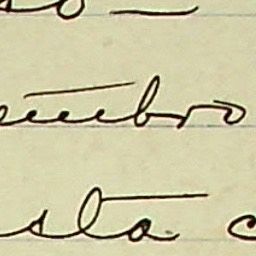 so —
embro
sta c